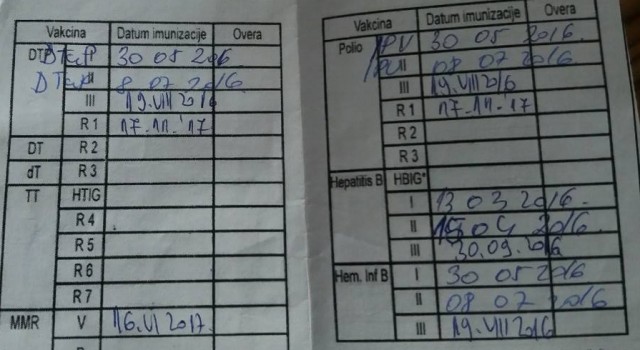 Vakcina Datum imunizacije Overa
DTP DTaP I 30 05 2016
DTaP II 8 07 2016
III 19.VIII 2016
R 1 17-11-'17
DT R 2
dT R 3
TT HTIG
R4
R5
R6
R7
MMR V 16.VI 2017.
Vakcina Datum imunizacije Overa
Polio IPV 30 05 2016.
IPV II 08 07 2016.
III 19.VIII 2016
R 1 17-11-'17
R 2
R 3
Hepatitis B HBIG*
I 13 03 2016.
II 04 2016.
III 30.09.2016
Hem. Inf B I 30 05 2016
II 08 07 2016
III 19.VIII 2016